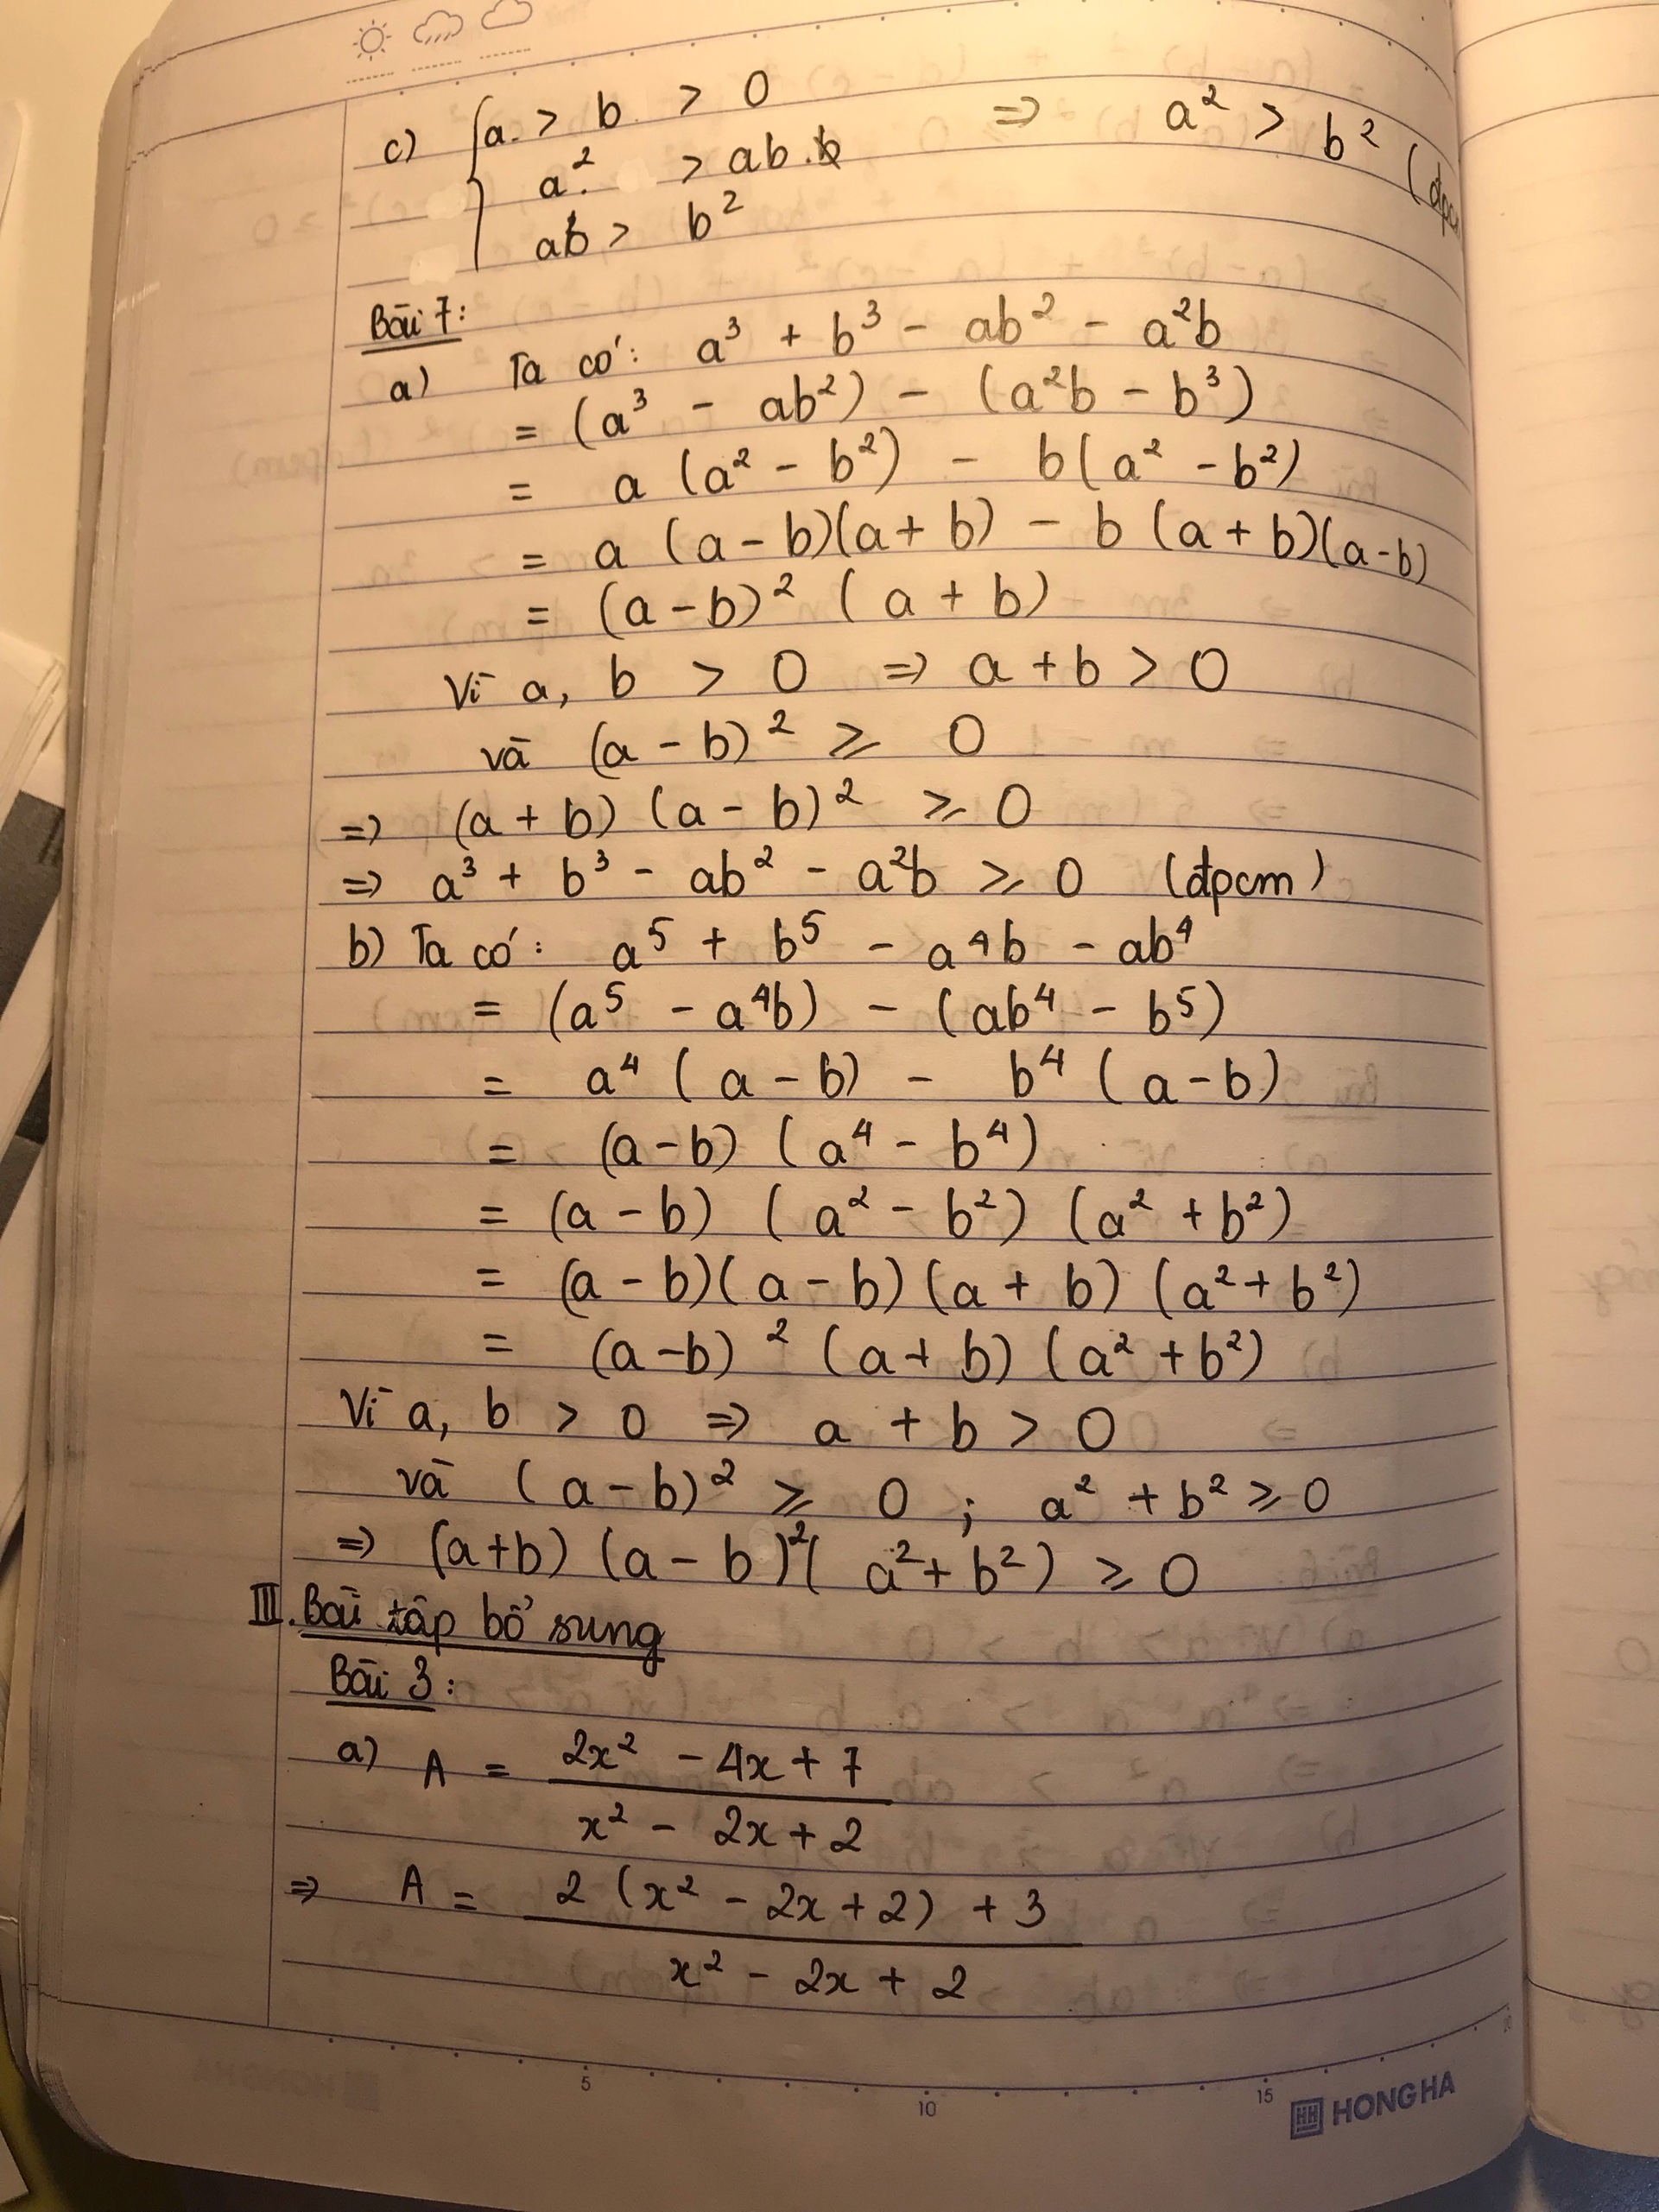 c) { a > b > 0 ⇒ a² > b² (đpcm
a² > ab
ab > b²
Bài 7:
a) Ta có: a³ + b³ - ab² - a²b
= (a³ - ab²) - (a²b - b³)
= a (a² - b²) - b(a² - b²)
= a (a - b)(a + b) - b (a + b)(a - b)
= (a - b)² (a + b)
Vì a, b > 0 ⇒ a + b > 0
và (a - b)² ⩾ 0
⇒ (a + b) (a - b)² ⩾ 0
⇒ a³ + b³ - ab² - a²b ⩾ 0 (đpcm)
b) Ta có: a⁵ + b⁵ - a⁴b - ab⁴
= (a⁵ - a⁴b) - (ab⁴ - b⁵)
= a⁴ (a - b) - b⁴ (a - b)
= (a - b) (a⁴ - b⁴)
= (a - b) (a² - b²) (a² + b²)
= (a - b)(a - b)(a + b) (a² + b²)
= (a - b)² (a + b) (a² + b²)
Vì a, b > 0 ⇒ a + b > 0
và (a - b)² ⩾ 0 ; a² + b² ⩾ 0
⇒ (a + b) (a - b)² (a² + b²) ⩾ 0
III. Bài tập bổ sung
Bài 3:
a) A = 2x² - 4x + 7
x² - 2x + 2
⇒ A = 2 (x² - 2x + 2) + 3
x² - 2x + 2
5 10 15
HONG HA